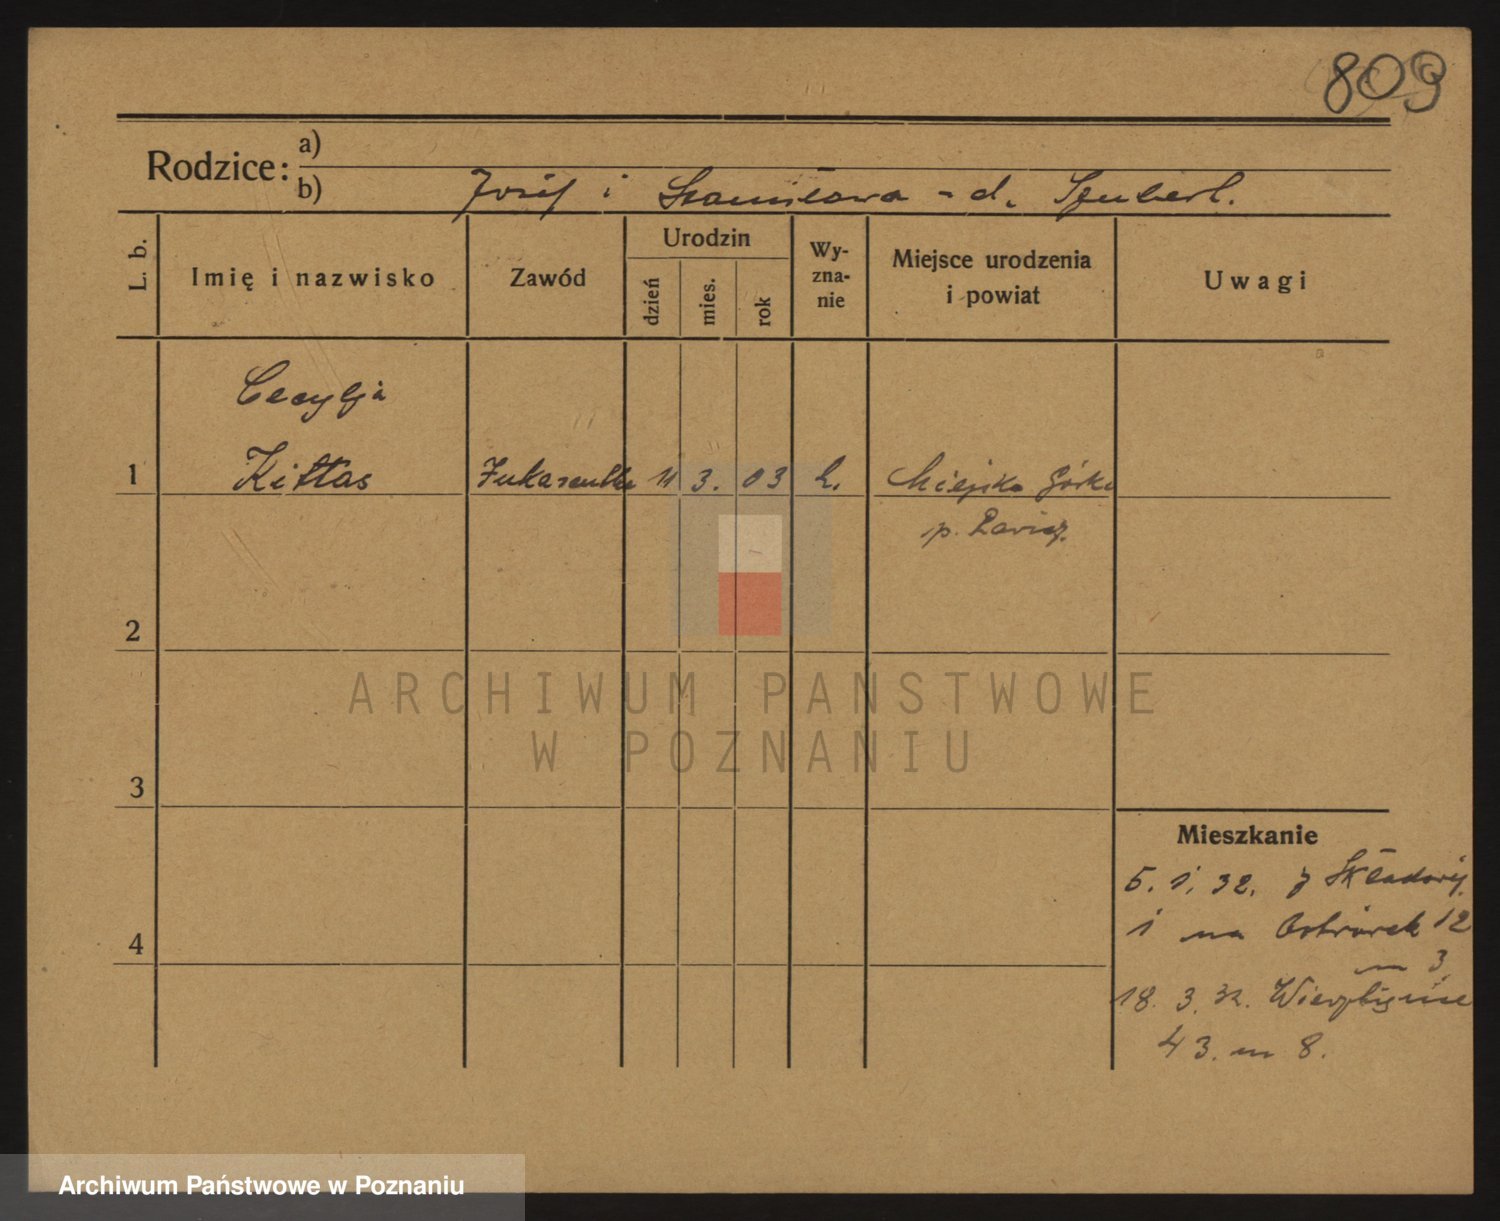 809
Rodzice: a)
b) Józef i Stanisława - d. Szubert.
L. b. Imię i nazwisko Zawód Urodzin dzień mies. rok Wy-zna-nie Miejsce urodzenia i powiat Uwagi
Cecylja
1 Kittas 11 3. 03 k. Miejska Górka
p. Rawicz.
2
ARCHIWUM PAŃSTWOWE
W POZNANIU
3
Mieszkanie
5. 1. 32. z Składowej
4 1 na Ostrówek 12
m 3
18. 3. 32. Wierzbięcice
43. m 8.
Archiwum Państwowe w Poznaniu